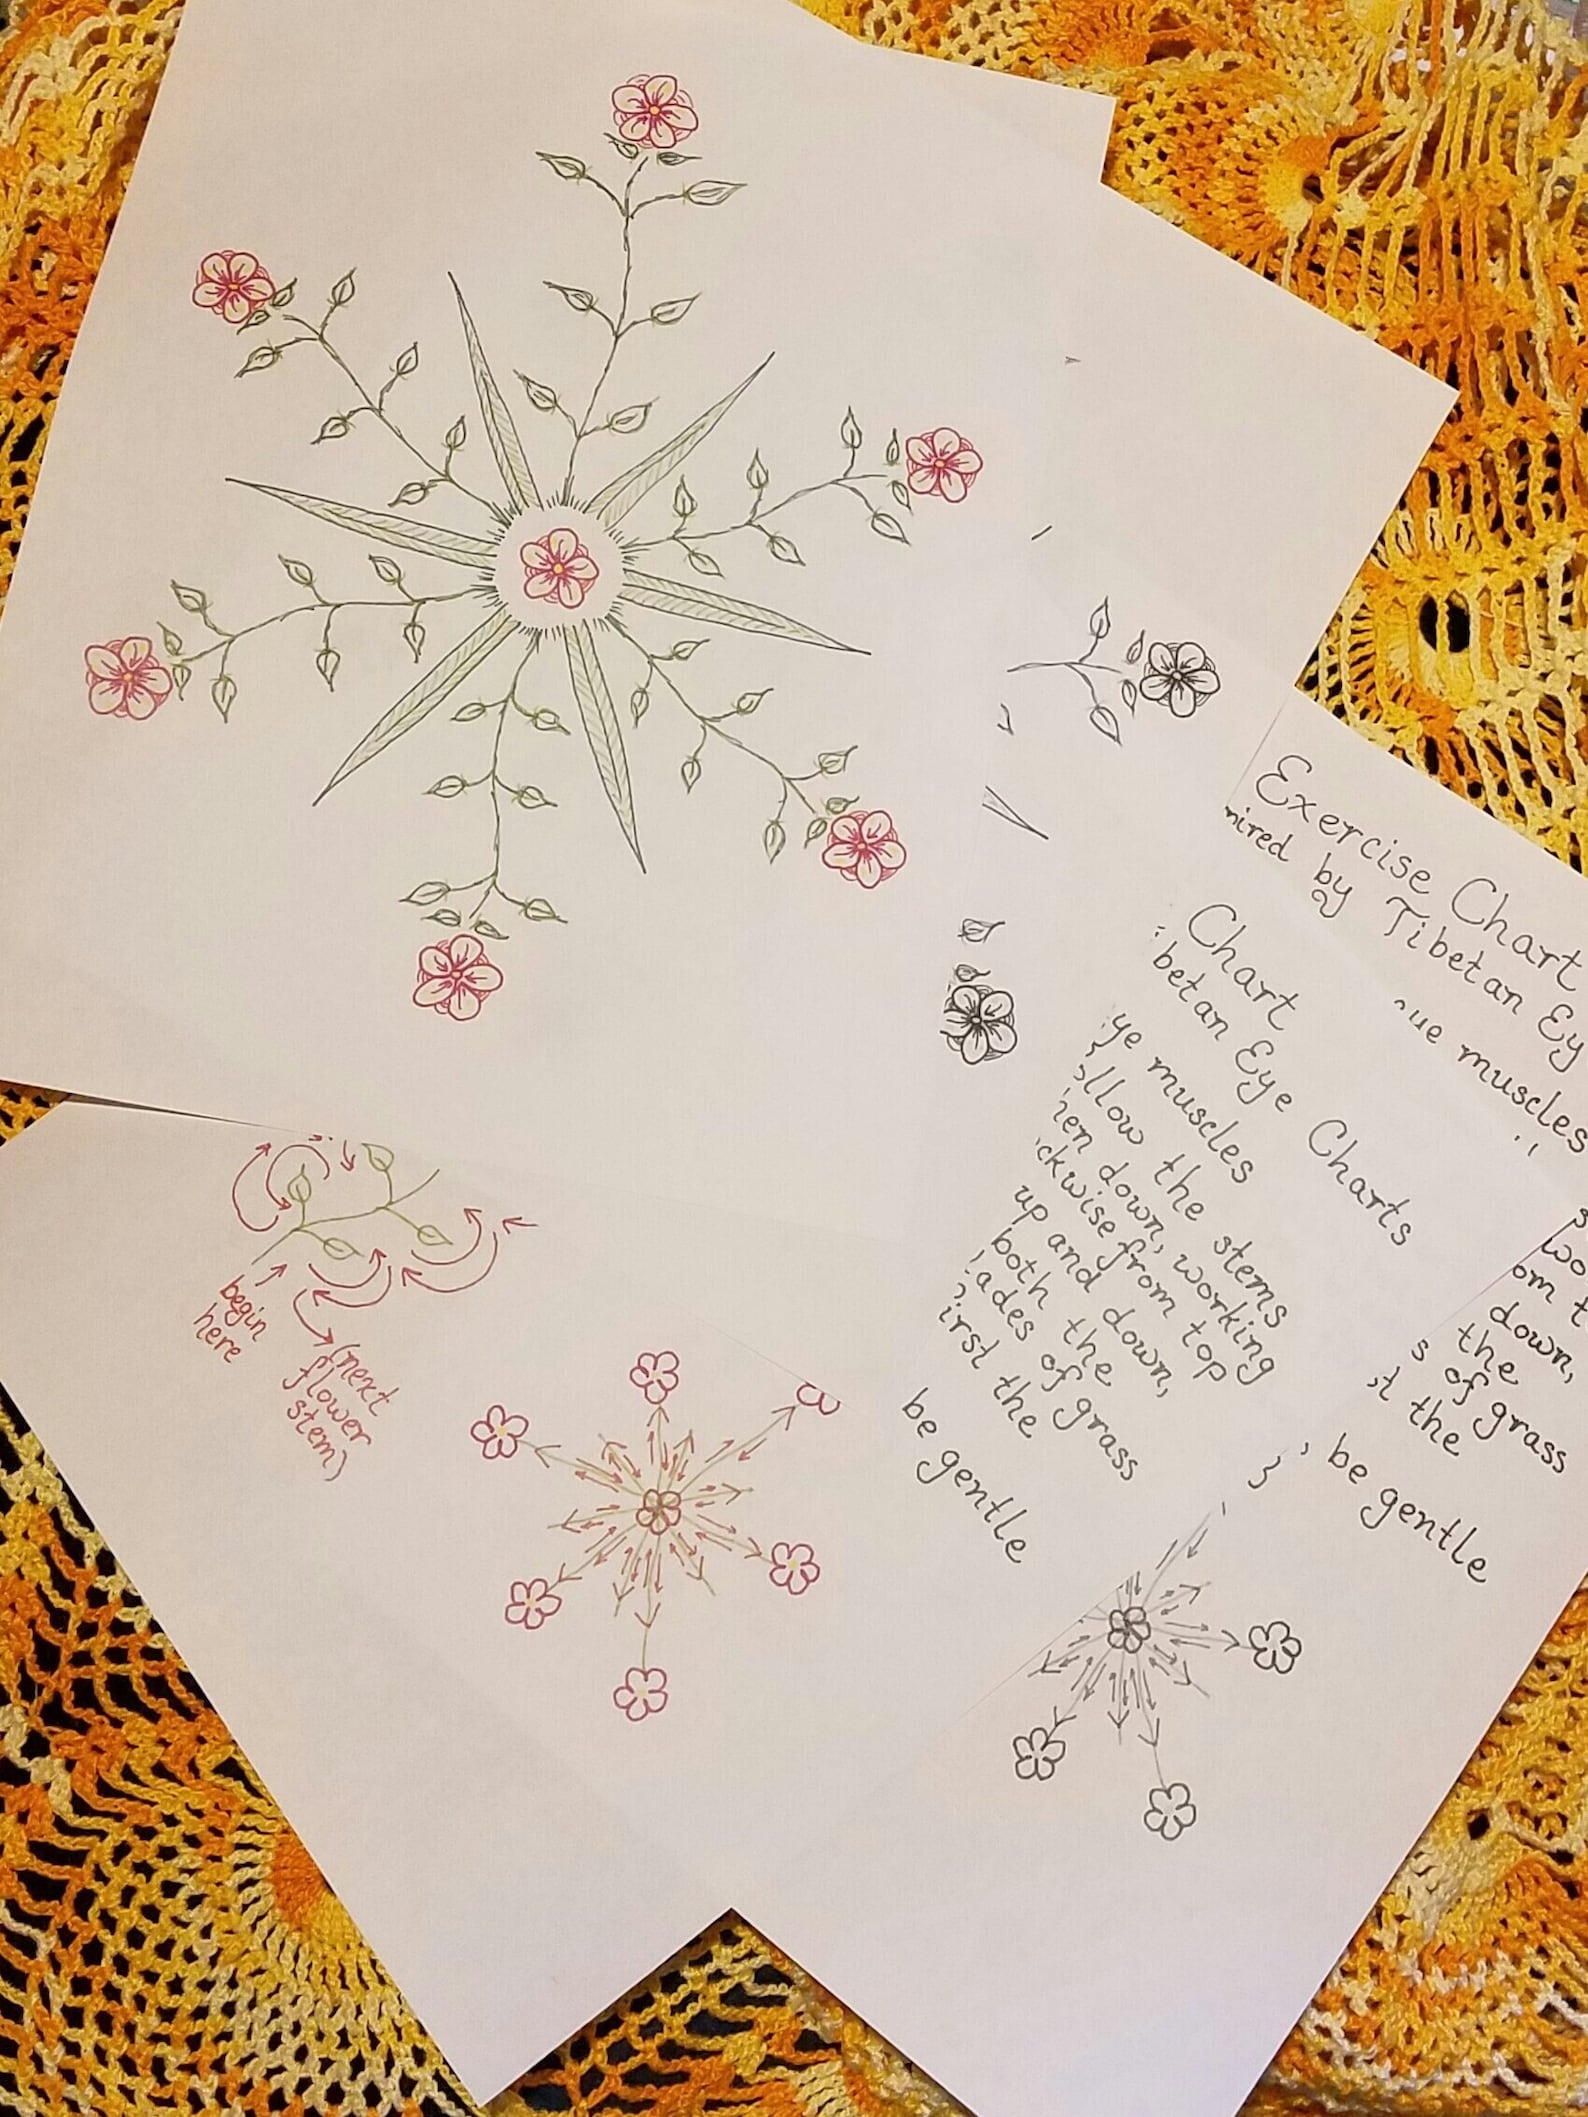 Exercise Chart
pired by Tibetan Ey
muscles
down,
the
of grass
the
be gentle
Chart
betan Eye Charts
ye muscles
ollow the stems
hen down, working
ckwise from top
up and down,
both the
lades of grass
irst the
be gentle
begin
here
(next
flower
stem)